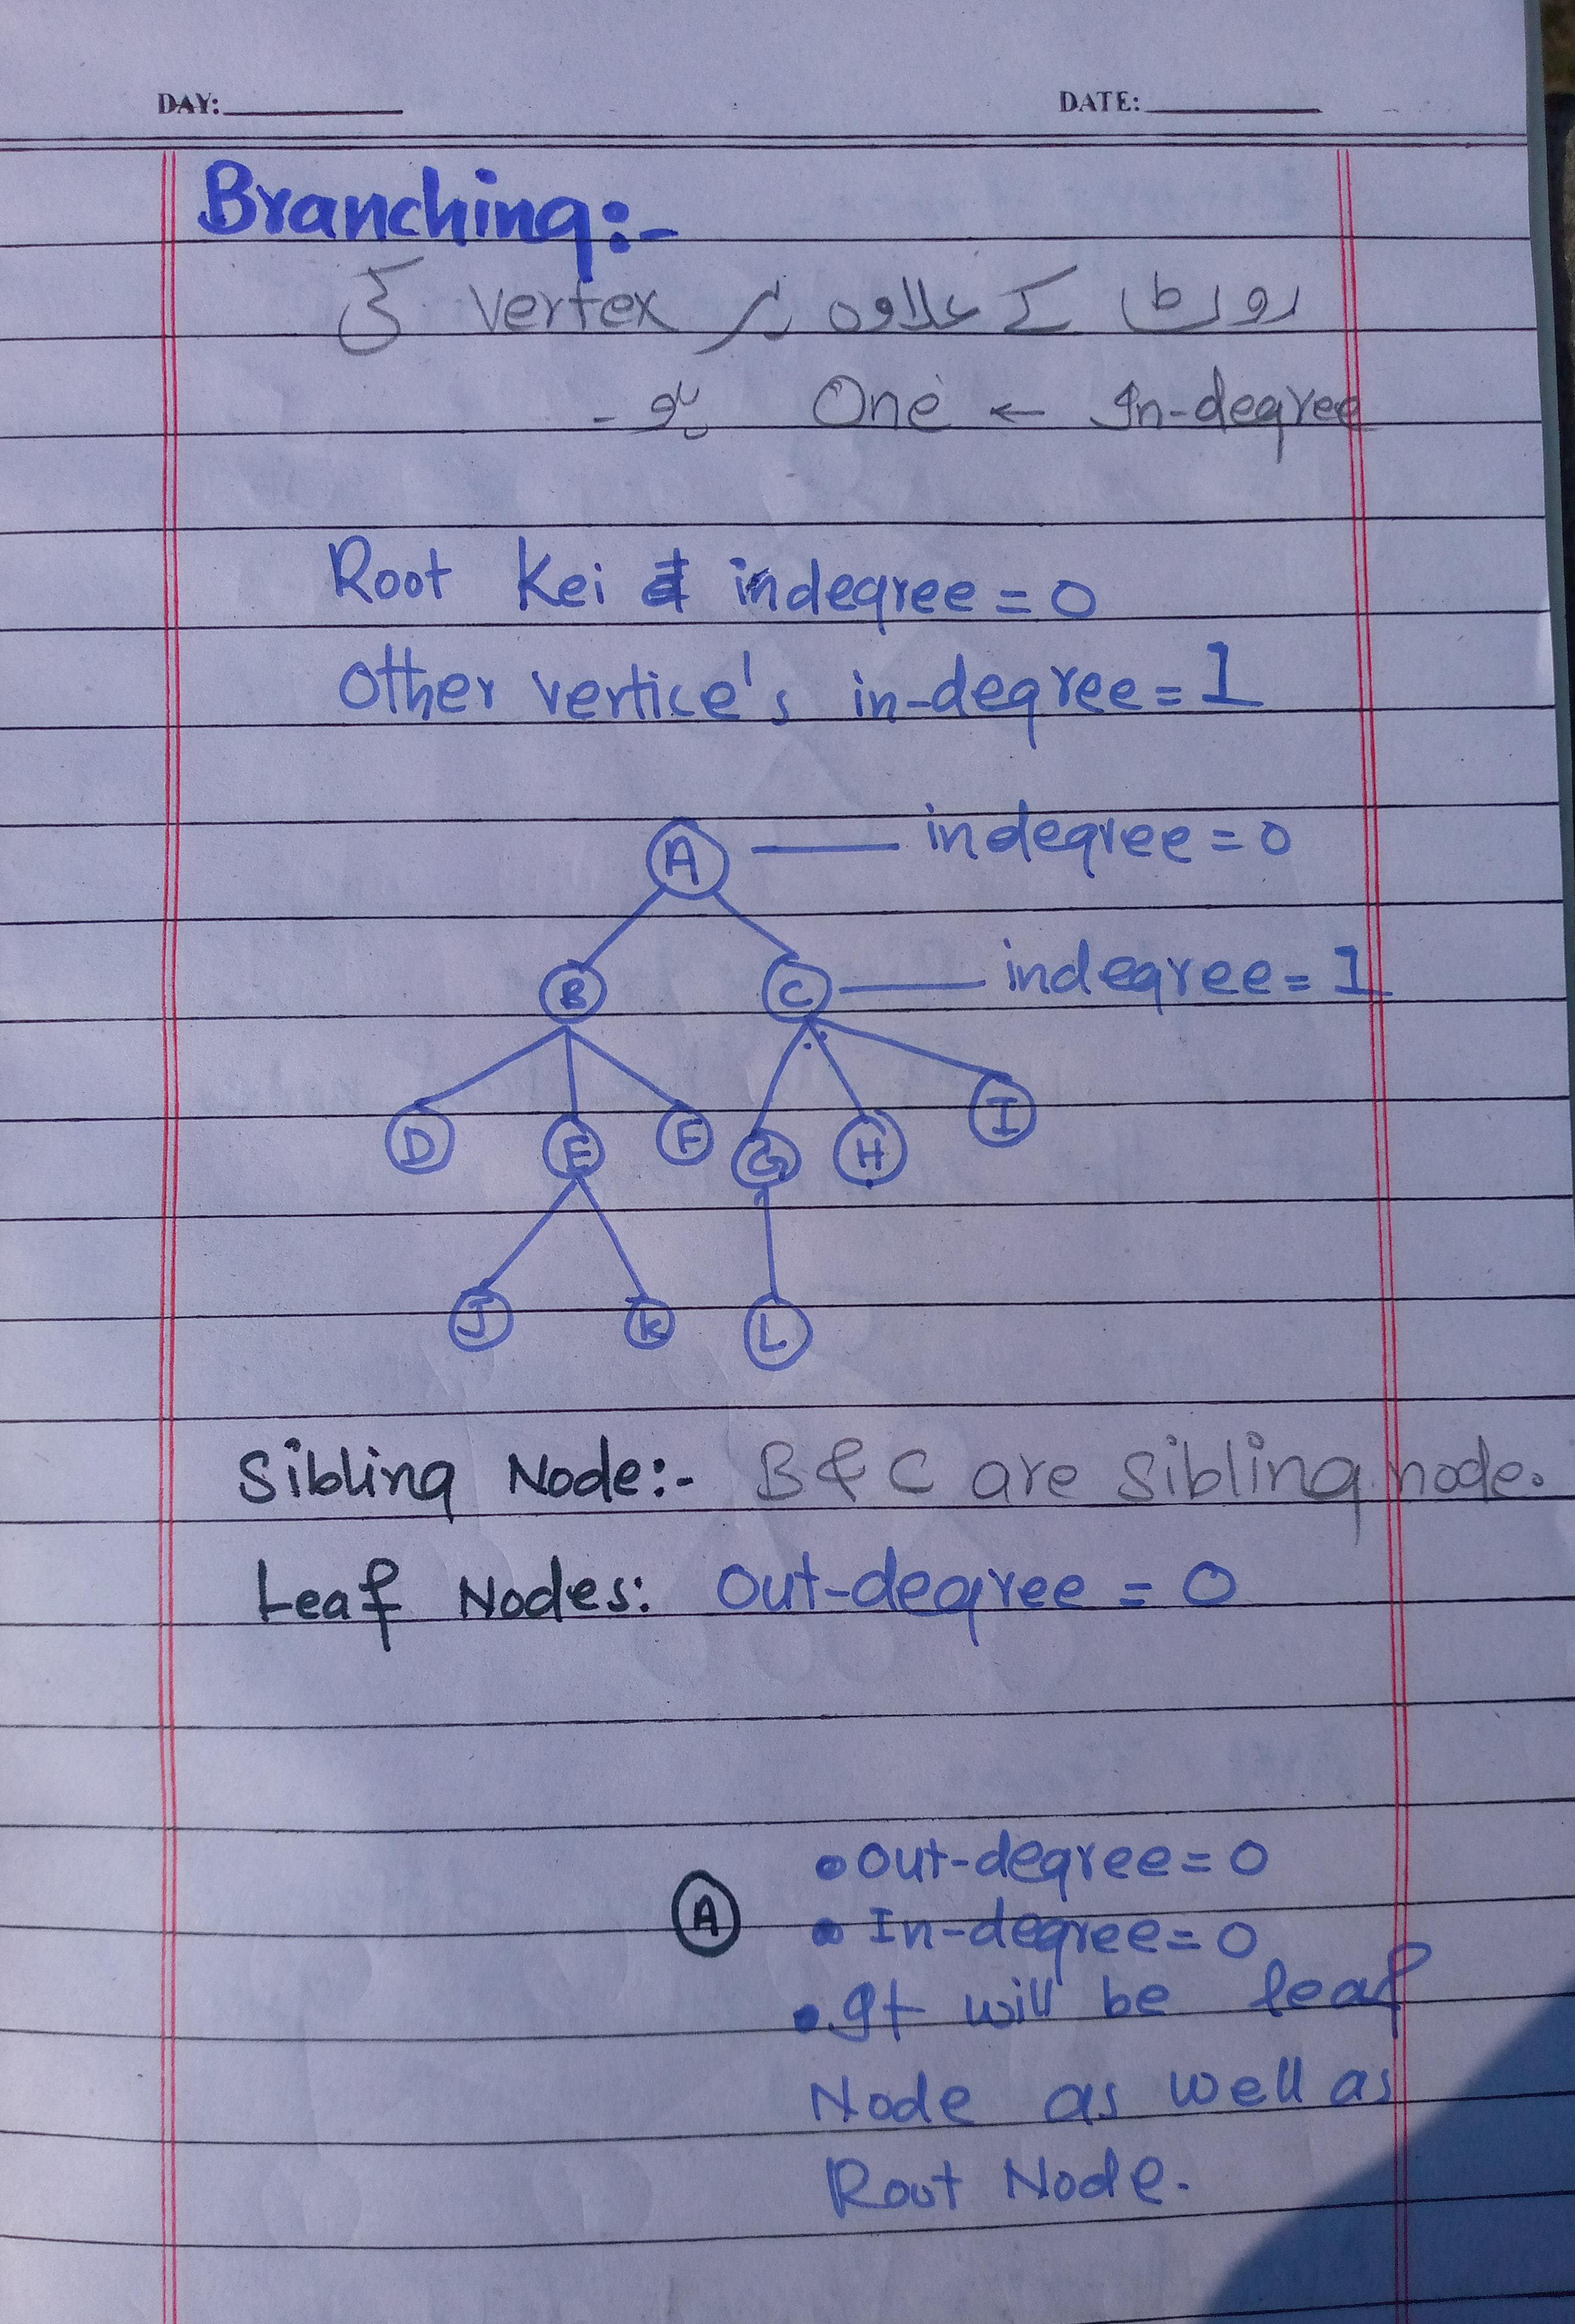 DAY: DATE:
Branching:-
روٹ کے علاوہ ہر vertex کی
In-degree ← One ہو -
Root Kei indegree = 0
Other vertice's in-degree = 1
A indegree = 0
B C indegree = 1
D E F G H I
J K L
Sibling Node:- B & C are sibling node.
Leaf Nodes: Out-degree = 0
• Out-degree = 0
A • In-degree = 0
• It will be leaf
Node as well as
Root Node.